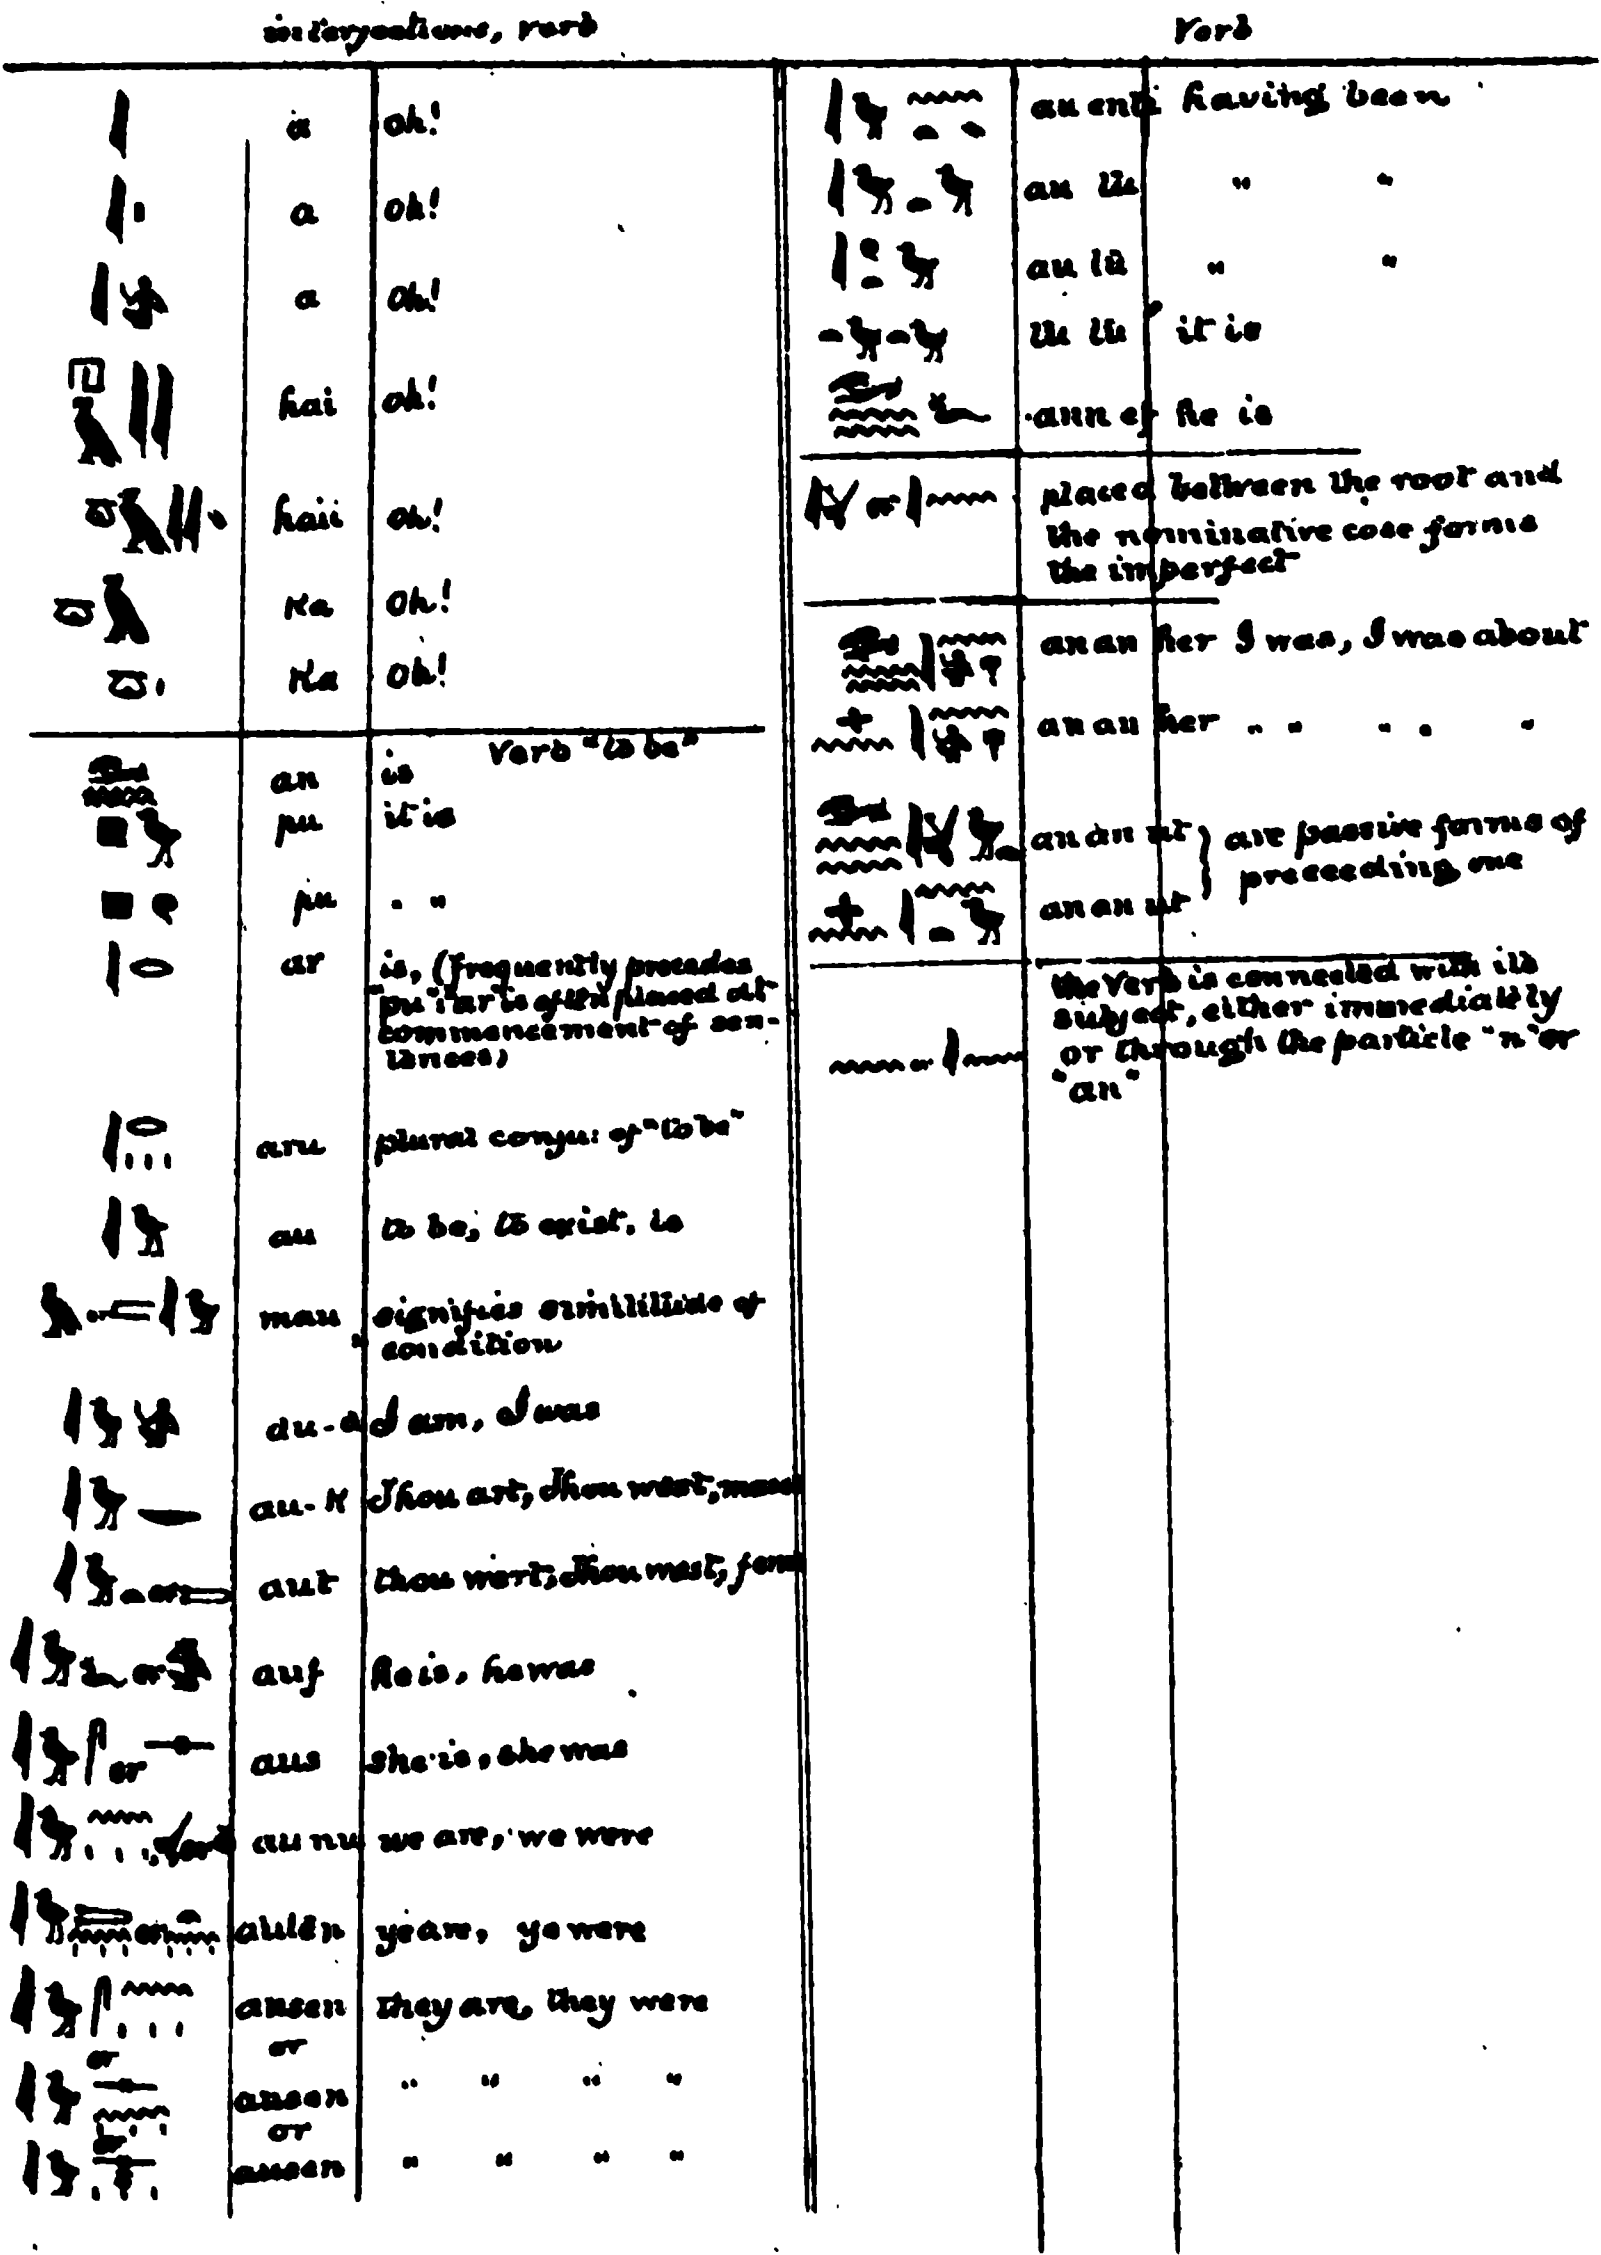 interjections, verb
a oh!
a oh!
a oh!
hai oh!
haii oh!
Ka oh!
Ka oh!
Verb "to be"
an is
pu it is
pu " "
ar is, (frequently precedes
"pu" "ar" is often placed at
commencement of sen-
tences)
aru plural conju: of "to be"
au to be, to exist, is
or mau signifies similitude of
condition
au-a I am, I was
au-K Thou art, Thou wast, masc
or aut thou wert, Thou wast, fem
or auf he is, he was
or aus she is, she was
or au nu we are, we were
or auten ye are, ye were
ausen they are, they were
or or
ausen " " " "
or or
ausen " " " "
Verb
au enti having been
au tu " "
au tu " "
tu tu it is
ann ef he is
or placed between the root and
the nominative case forms
the imperfect
an an her I was, I was about
an an her " " " " "
an an ut } are passive forms of
preceeding one
an an ut
the Verb is connected with its
subject, either immediately
or or through the particle "n" or
"an"